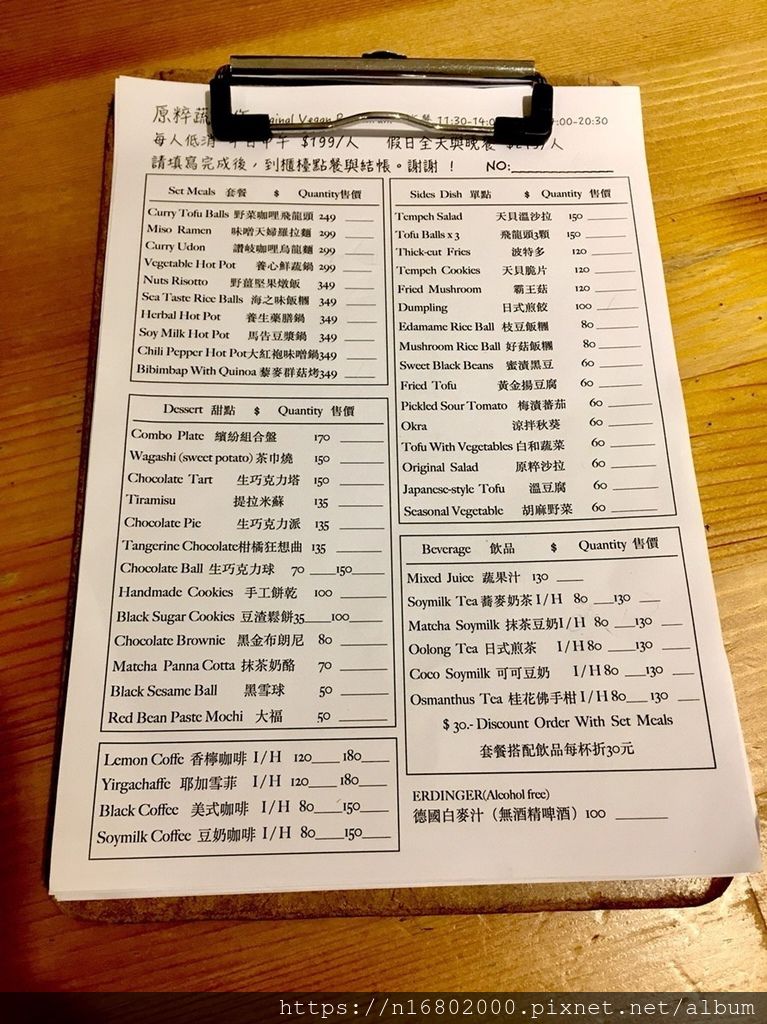 原粹蔬 作 ginal Vegan 11:30-14:0 :00-20:30
每人低消 平日中午 $199/人 假日全天與晚餐 /人
請填寫完成後，到櫃檯點餐與結帳。謝謝！ NO:
Set Meals 套餐 $ Quantity售價
Curry Tofu Balls 野菜咖哩飛龍頭 249
Miso Ramen 味噌天婦羅拉麵 299
Curry Udon 讚岐咖哩烏龍麵 299
Vegetable Hot Pot 養心鮮蔬鍋 299
Nuts Risotto 野薑堅果燉飯 349
Sea Taste Rice Balls 海之味飯糰 349
Herbal Hot Pot 養生藥膳鍋 349
Soy Milk Hot Pot 馬告豆漿鍋 349
Chili Pepper Hot Pot大紅袍味噌鍋349
Bibimbap With Quinoa 藜麥群菇烤349
Dessert 甜點 $ Quantity 售價
Combo Plate 繽紛組合盤 170
Wagashi (sweet potato) 茶巾燒 150
Chocolate Tart 生巧克力塔 150
Tiramisu 提拉米蘇 135
Chocolate Pie 生巧克力派 135
Tangerine Chocolate柑橘狂想曲 135
Chocolate Ball 生巧克力球 70 150
Handmade Cookies 手工餅乾 100
Black Sugar Cookies 豆渣鬆餅35 100
Chocolate Brownie 黑金布朗尼 80
Matcha Panna Cotta 抹茶奶酪 70
Black Sesame Ball 黑雪球 50
Red Bean Paste Mochi 大福 50
Lemon Coffe 香檸咖啡 I/H 120 180
Yirgachaffe 耶加雪菲 I/H 120 180
Black Coffee 美式咖啡 I/H 80 150
Soymilk Coffee 豆奶咖啡 I/H 80 150
Sides Dish 單點 $ Quantity 售價
Tempeh Salad 天貝溫沙拉 150
Tofu Balls x 3 飛龍頭3顆 150
Thick-cut Fries 波特多 120
Tempeh Cookies 天貝脆片 120
Fried Mushroom 霸王菇 120
Dumpling 日式煎餃 100
Edamame Rice Ball 枝豆飯糰 80
Mushroom Rice Ball 好菇飯糰 80
Sweet Black Beans 蜜漬黑豆 60
Fried Tofu 黃金揚豆腐 60
Pickled Sour Tomato 梅漬蕃茄 60
Okra 涼拌秋葵 60
Tofu With Vegetables 白和蔬菜 60
Original Salad 原粹沙拉 60
Japanese-style Tofu 溫豆腐 60
Seasonal Vegetable 胡麻野菜 60
Beverage 飲品 $ Quantity 售價
Mixed Juice 蔬果汁 130
Soymilk Tea 蕎麥奶茶 I/H 80 130
Matcha Soymilk 抹茶豆奶I/H 80 130
Oolong Tea 日式煎茶 I/H 80 130
Coco Soymilk 可可豆奶 I/H 80 130
Osmanthus Tea 桂花佛手柑 I/H 80 130
$ 30.- Discount Order With Set Meals
套餐搭配飲品每杯折30元
ERDINGER(Alcohol free)
德國白麥汁（無酒精啤酒）100
https://n16802000.pixnet.net/album